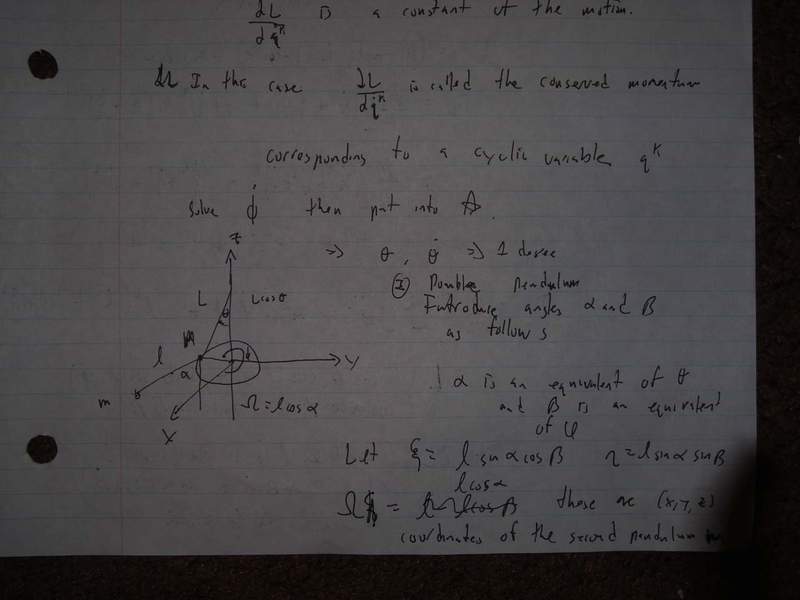 ∂L/∂q̇ᴷ is a constant of the motion.
In this case ∂L/∂q̇ᴷ is called the conserved momentum
corresponding to a cyclic variable qᴷ
Solve φ̇ then put into ☆.
⇒ θ, θ̇ ⇒ 1 degree
Z
(I) Double pendulum
L
L cosθ
Introduce angles α and β
θ
as follows
M
l
Y
α
α is an equivalent of θ
m
Ω = l cosα
and β is an equivalent
X
of φ
Let ξ = l sinα cosβ η = l sinα sinβ
l cosα
Ω = these are (x, y, z)
coordinates of the second pendulum